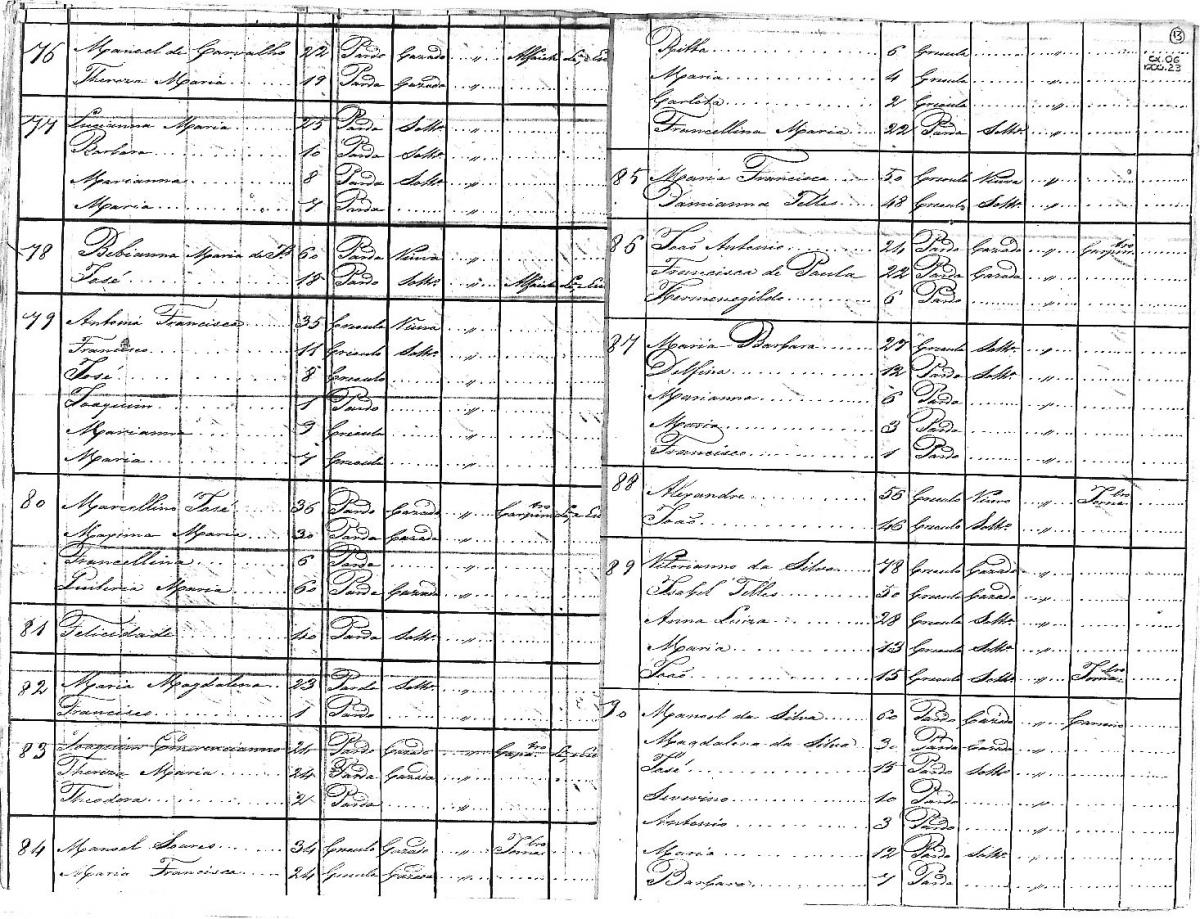 76 Manoel de Carvalho 22 Pardo Cazado " Alfaiate
Thereza Maria 19 Parda Cazada "
77 Lucianna Maria 25 Parda Soltrª "
Barbara 10 Parda Soltrª "
Marianna 8 Parda Soltrª "
Maria 7 Parda "
78 Bebianna Maria de 60 Parda Viuva "
José 18 Pardo Soltrº " Alfaiate
79 Antonia Francisca 35 Creoula Viuva "
Francisco 11 Creoulo Soltrº "
José 8 Creoulo "
Joaquim 1 Pardo "
Marianna 9 Creoula "
Maria 7 Creoula "
80 Marcellino José 36 Pardo Cazado " Carpintro
Maxima Maria 30 Parda Cazada "
Francellina 6 Parda "
Quiteria Maria 60 Parda Cazada "
81 Felicidade 40 Parda Soltrª "
82 Maria Magdalena 23 Parda Soltrª "
Francisco 1 Pardo "
83 Joaquim 24 Pardo Cazado "
Thereza Maria 24 Parda Cazada "
Theodora 2 Parda "
84 Manoel Soares 34 Creoulo Cazado " Jornalro
Maria Francisca 24 Creoula Cazada "
13
CX.06
Ritta 6 Creoula "
Maria 4 Creoula "
Carlota 2 Creoula "
Francellina Maria 22 Parda Soltrª "
85 Maria Francisca 50 Creoula Viuva "
Damianna Telles 48 Creoula Soltrª "
86 João Antonio 24 Pardo Cazado " Carpintro
Francisca de Paula 22 Parda Cazada "
Hermenegildo 6 Pardo "
87 Maria Barbara 27 Creoula Soltrª "
Delfina 12 Parda Soltrª "
Marianna 6 Parda "
Maria 3 Parda "
Francisco 1 Pardo "
88 Alexandre 56 Creoulo Viuvo " Jornalro
João 46 Creoulo Soltrº "
89 Vitorianno da Silva 78 Creoulo Cazado "
Izabel Telles 50 Creoula Cazada "
Anna Luiza 28 Creoula Soltrª "
Maria 13 Creoula Soltrª "
João 15 Creoulo Soltrº " Jornalro
90 Manoel da Silva 60 Pardo Cazado " Carreiro
Magdalena da Silva 30 Parda Cazada "
José 15 Pardo Soltrº "
Severino 10 Pardo "
Antonio 3 Pardo "
Maria 12 Parda Soltrª "
Barbara 7 Parda "